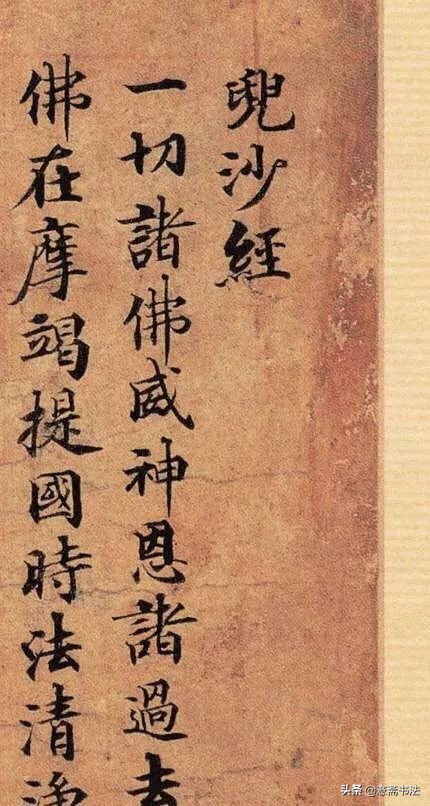 兜沙經
一切諸佛威神恩諸過去
佛在摩竭提國時法清淨
头条 @悫斋书法